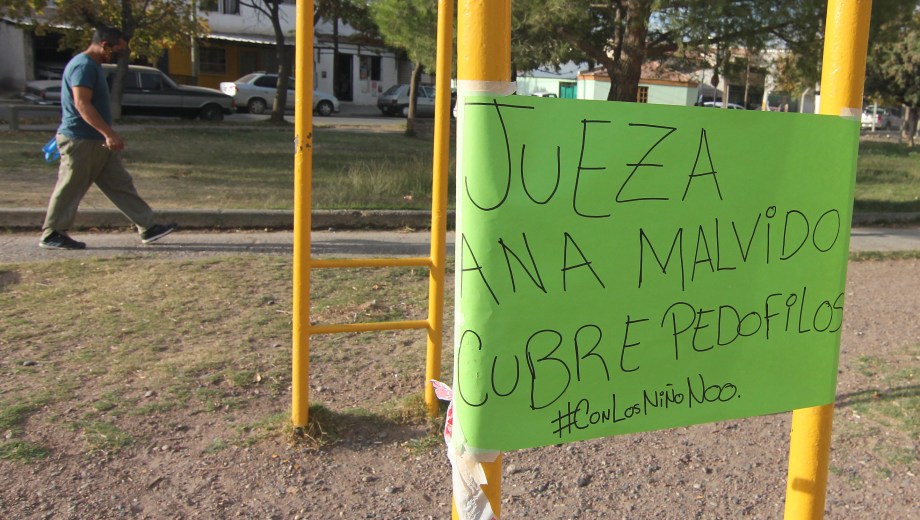 JUEZA
ANA MALViDO
CUBRE PEDOFiLOS
#CONLOSNiÑONOO.